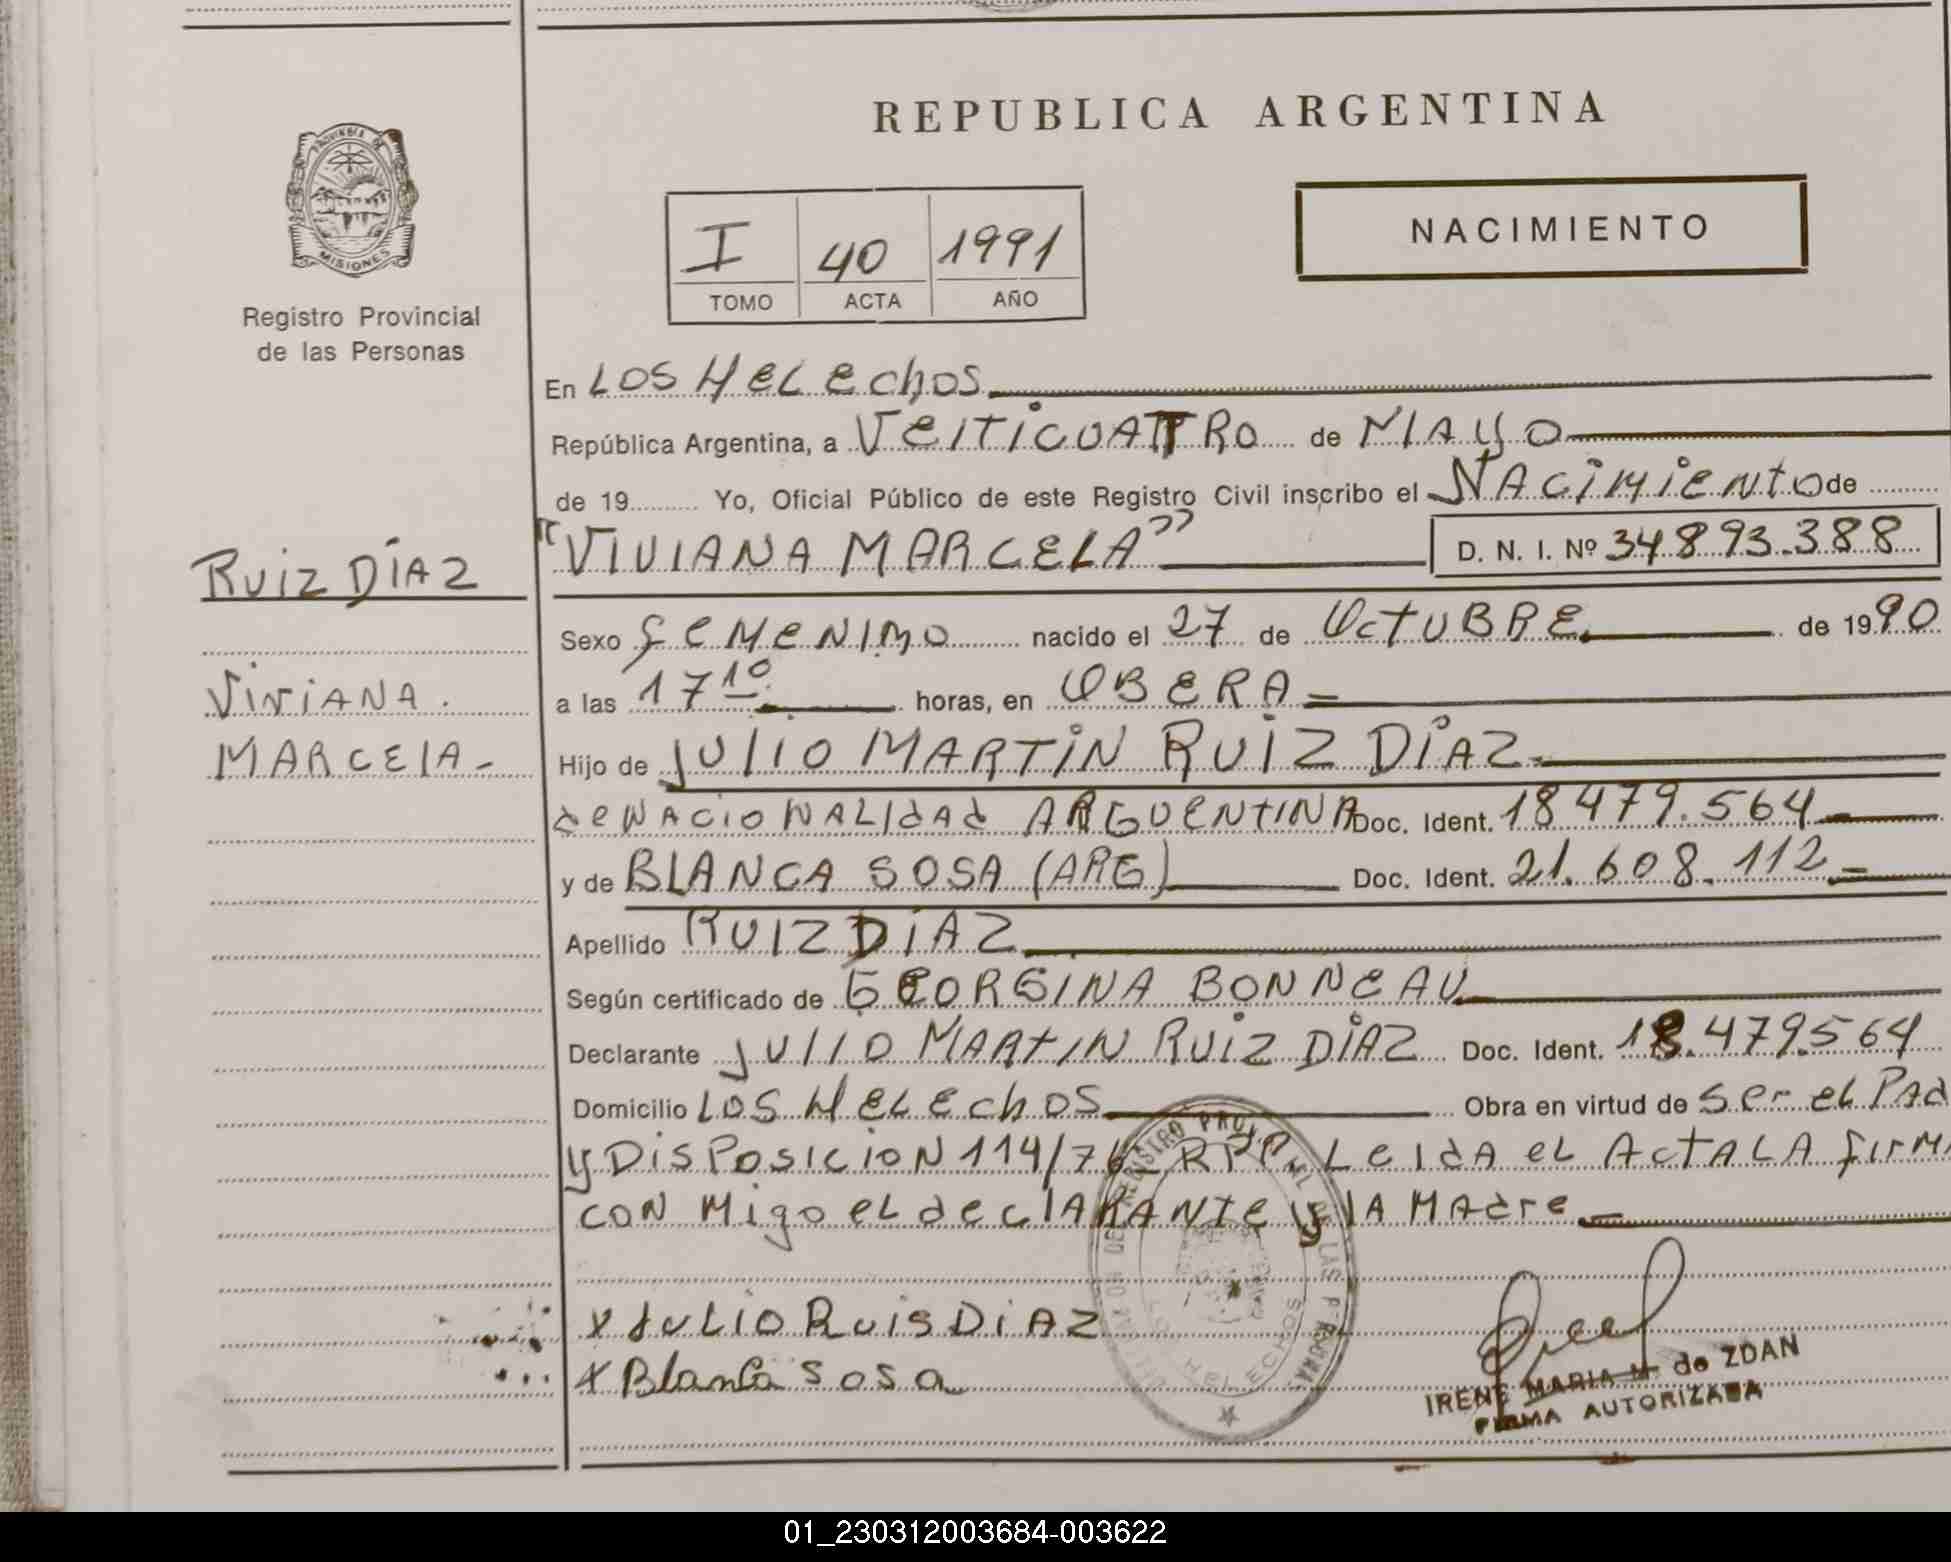 REPUBLICA ARGENTINA
PROVINCIA DE
MISIONES
Registro Provincial
de las Personas
I 40 1991
TOMO ACTA AÑO
NACIMIENTO
En LOS HELEchOS
República Argentina, a VEITICUATRO de MAYO
de 19 Yo, Oficial Público de este Registro Civil inscribo el NACiMiENtO de
"VIVIANA MARCELA" D. N. I. Nº 34893.388
RUIZ DÍAZ
Sexo FEMENIMO nacido el 27 de OCTUBRE de 1990
VIVIANA.
a las 17 10 horas, en OBERA
MARCELA-
Hijo de JULIO MARTIN RUIZ DIAZ
de NACIONALIdAd ARGUENTINA Doc. Ident. 18479.564
y de BLANCA SOSA (ARG) Doc. Ident. 21.608.112
Apellido RUIZ DIAZ
Según certificado de GEORGINA BONNEAU
Declarante JULIO MARTIN RUIZ DIAZ Doc. Ident. 18.479.564
Domicilio LOS HELEchOS Obra en virtud de SER EL PAd
y DISPOSICION 114/76 RPP. LEIdA EL ACTA LA FIRM
CON MIGO EL dECLARANTE y LA MAdRE
x JULIO RUIS DIAZ
x Blanca Sosa
LOS HELECHOS
IRENE MARIA M de ZDAN
FIRMA AUTORIZADA
01_230312003684-003622